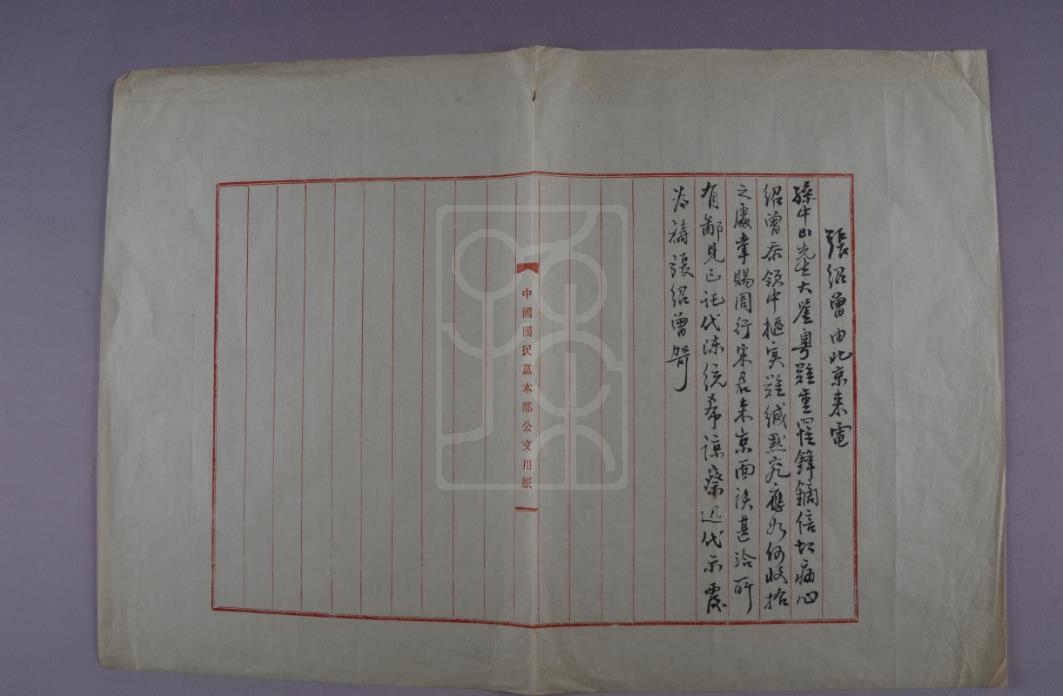 張紹曾由北京来電
孫中山先生大鑒粤難重罹鋒鏑倍切痛心
紹曾忝領中樞実難緘黙究應如何收拾
之處幸賜周行宋君来京面談甚洽所
有鄙見已託代陳統希諒察迅代示覆
为禱張紹曾
中國國民黨本部公文用紙